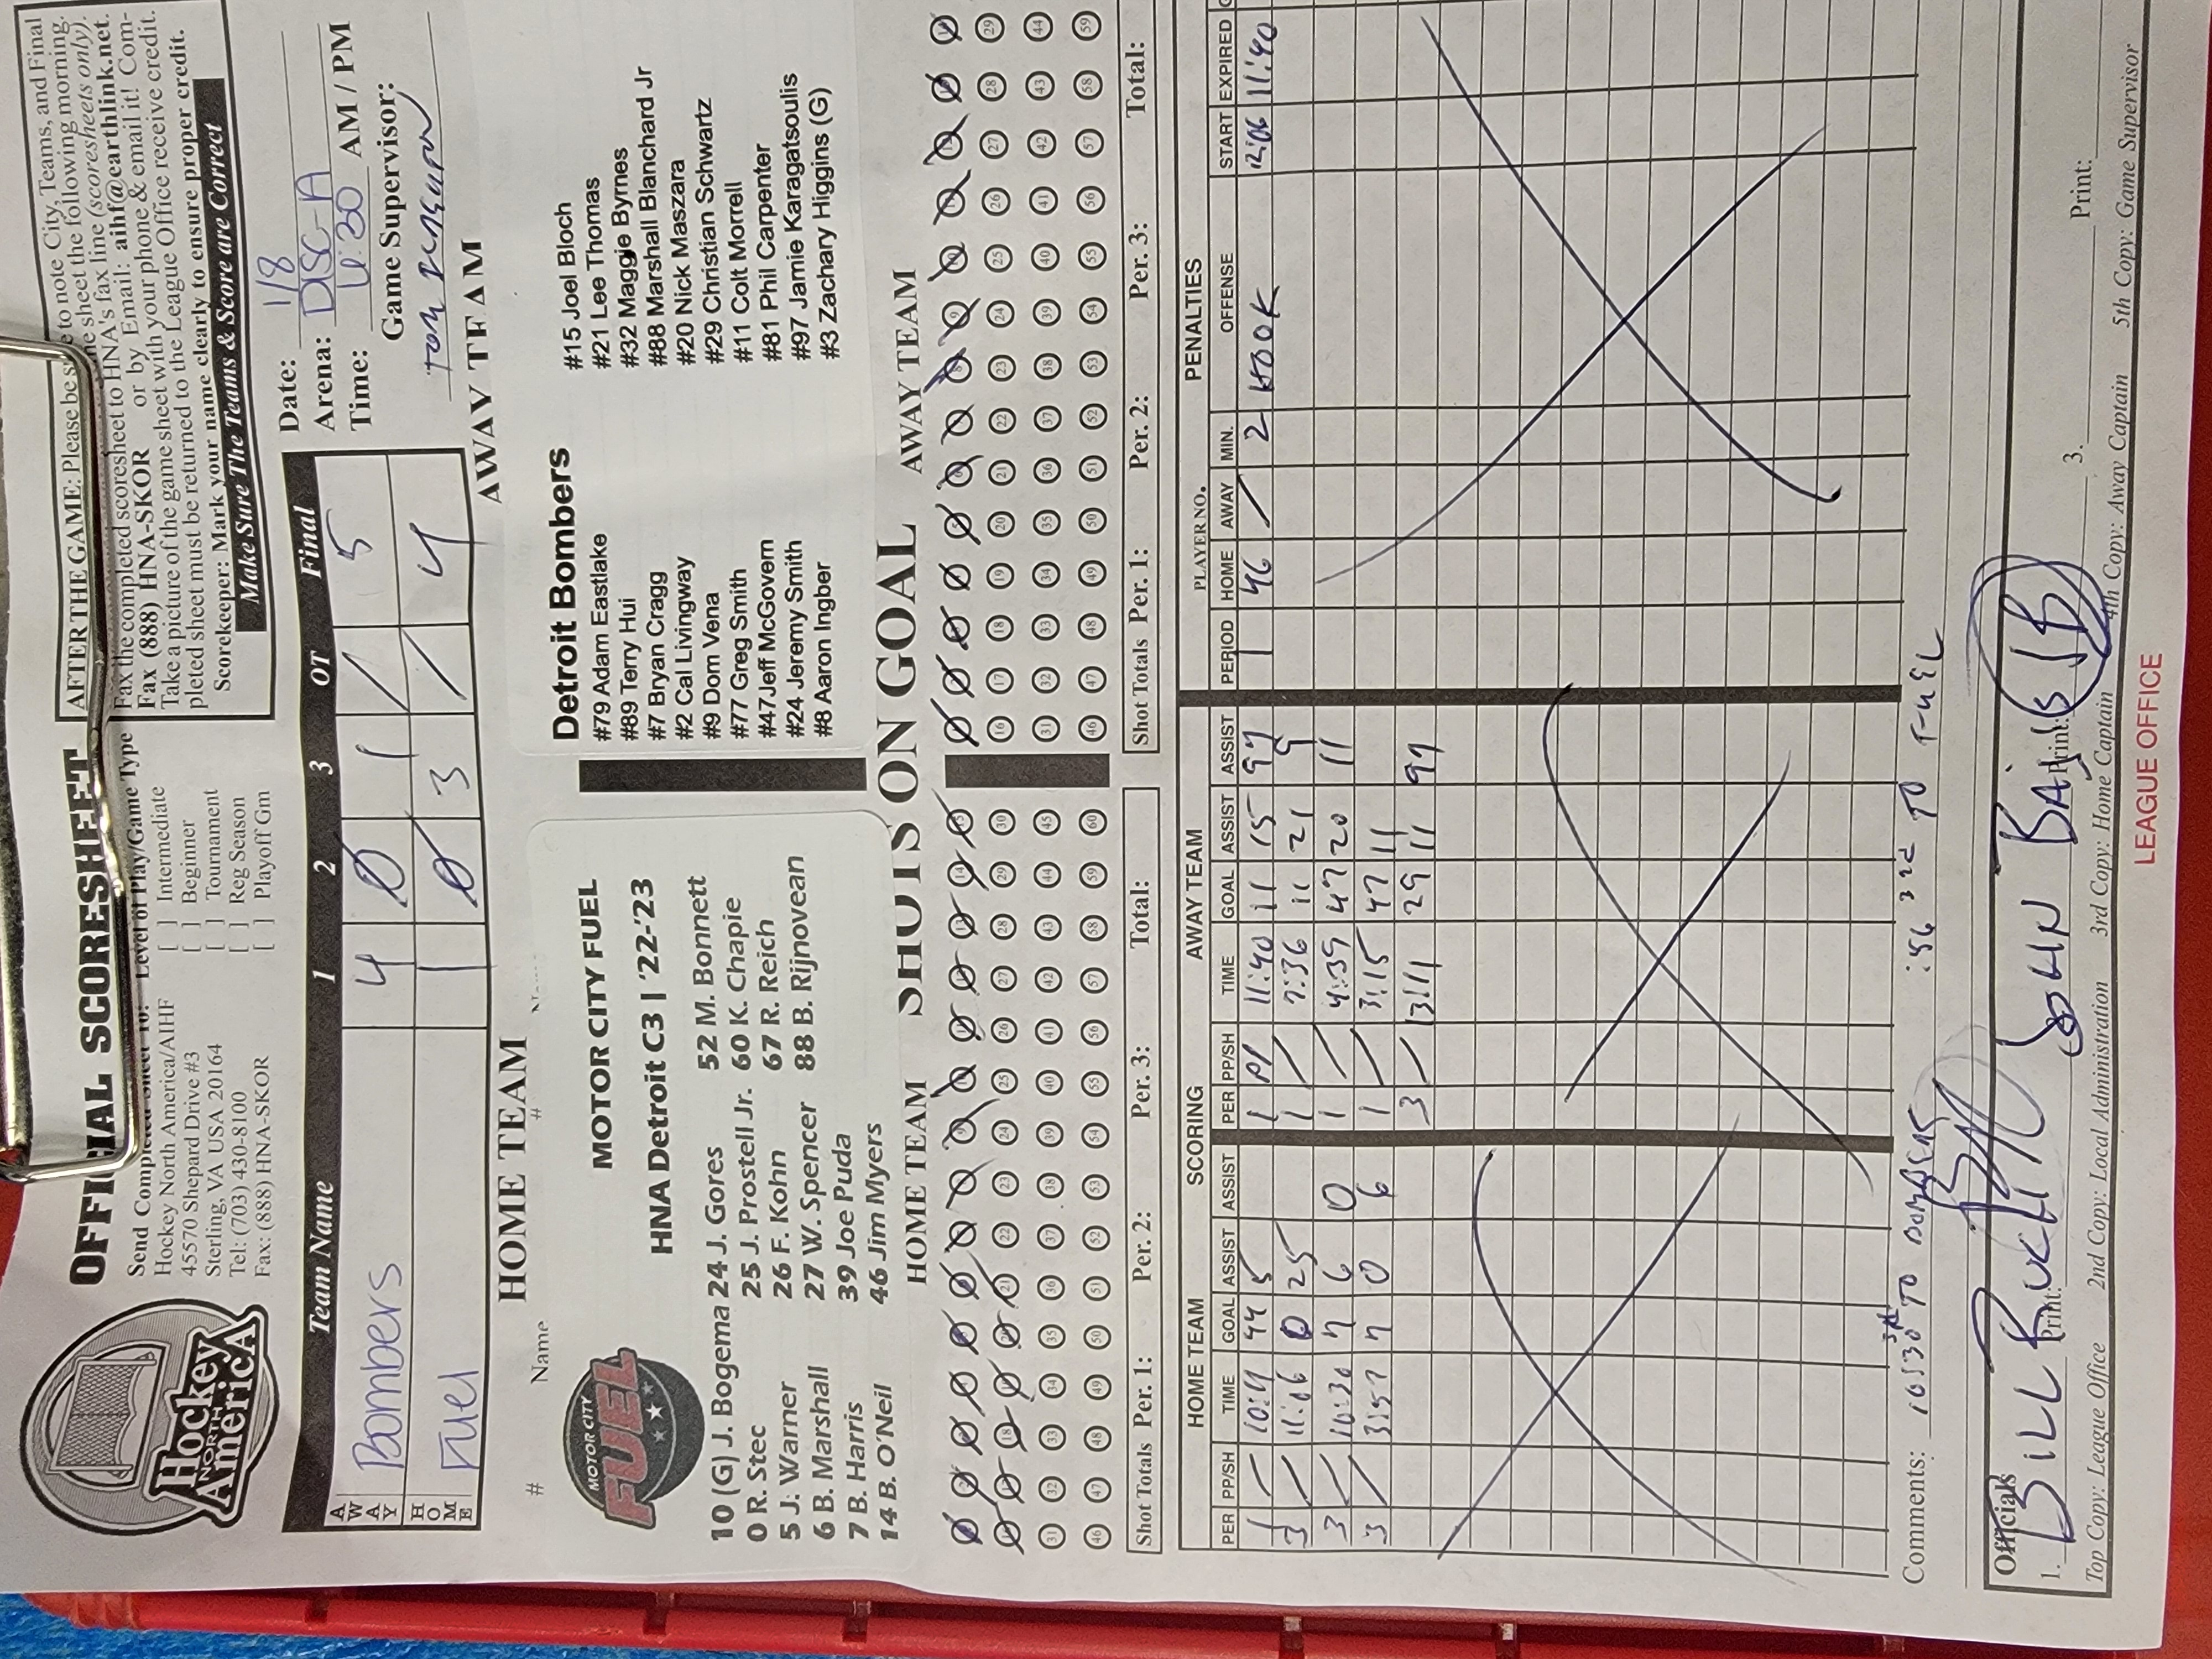 OFFICIAL SCORESHEET
Hockey
NORTH
AmericA
Send Completed Sheet To:
Hockey North America/AIHF
45570 Shepard Drive #3
Sterling, VA USA 20164
Tel: (703) 430-8100
Fax: (888) HNA-SKOR
Level of Play/Game Type
[ ] Intermediate
[ ] Beginner
[ ] Tournament
[ ] Reg Season
[ ] Playoff Gm
AFTER THE GAME: Please be to note City, Teams, and Final
sheet the following morning.
Fax the completed scoresheet to HNA's fax line (scoresheets only).
Fax (888) HNA-SKOR or by Email: aihf@earthlink.net.
Take a picture of the game sheet with your phone & email it! Com-
pleted sheet must be returned to the League Office receive credit.
Scorekeeper: Mark your name clearly to ensure proper credit.
Make Sure The Teams & Score are Correct
Team Name 1 2 3 OT Final
AWAY Bombers 4 0 1 / 5
HOME Fuel 1 0 3 / 4
Date: 1/8
Arena: DISC-A
Time: 6:30 AM / PM
Game Supervisor:
HOME TEAM
# Name #
MOTOR CITY FUEL
MOTOR CITY FUEL
HNA Detroit C3 | '22-'23
10 (G) J. Bogema 24 J. Gores 52 M. Bonnett
0 R. Stec 25 J. Prostell Jr. 60 K. Chapie
5 J. Warner 26 F. Kohn 67 R. Reich
6 B. Marshall 27 W. Spencer 88 B. Rijnovean
7 B. Harris 39 Joe Puda
14 B. O'Neil 46 Jim Myers
AWAY TEAM
Detroit Bombers
#79 Adam Eastlake #15 Joel Bloch
#89 Terry Hui #21 Lee Thomas
#7 Bryan Cragg #32 Maggie Byrnes
#2 Cal Livingway #88 Marshall Blanchard Jr
#9 Dom Vena #20 Nick Maszara
#77 Greg Smith #29 Christian Schwartz
#47 Jeff McGovern #11 Colt Morrell
#24 Jeremy Smith #81 Phil Carpenter
#8 Aaron Ingber #97 Jamie Karagatsoulis
#3 Zachary Higgins (G)
HOME TEAM SHOTS ON GOAL AWAY TEAM
16 17 18 19 20 21 22 23 24 25 26 27 28 29
31 32 33 34 35 36 37 38 39 40 41 42 43 44 45 31 32 33 34 35 36 37 38 39 40 41 42 43 44
46 47 48 49 50 51 52 53 54 55 56 57 58 59 60 46 47 48 49 50 51 52 53 54 55 56 57 58 59
Shot Totals Per. 1: Per. 2: Per. 3: Total: Shot Totals Per. 1: Per. 2: Per. 3: Total:
SCORING
HOME TEAM AWAY TEAM
PER PP/SH TIME GOAL ASSIST ASSIST PER PP/SH TIME GOAL ASSIST ASSIST
1 / 44 5 1 PP 11:40 11 15 97
3 / 11:06 0 25 1 / 7:36 11 21 9
3 / 10:30 7 6 0 1 / 4:39 47 20 11
3 / 3:57 7 0 6 1 / 3:15 47 11
3 / 29 11 97
PENALTIES
PLAYER NO.
PERIOD HOME AWAY MIN. OFFENSE START EXPIRED
1 46 / 2 HOOK 12:06 11:40
Comments: 10:30 3rd TO BOMBERS :56 3rd TO FUEL
Officials
1. Print: Print: 3. Print:
JOHN
Top Copy: League Office 2nd Copy: Local Administration 3rd Copy: Home Captain 4th Copy: Away Captain 5th Copy: Game Supervisor
LEAGUE OFFICE